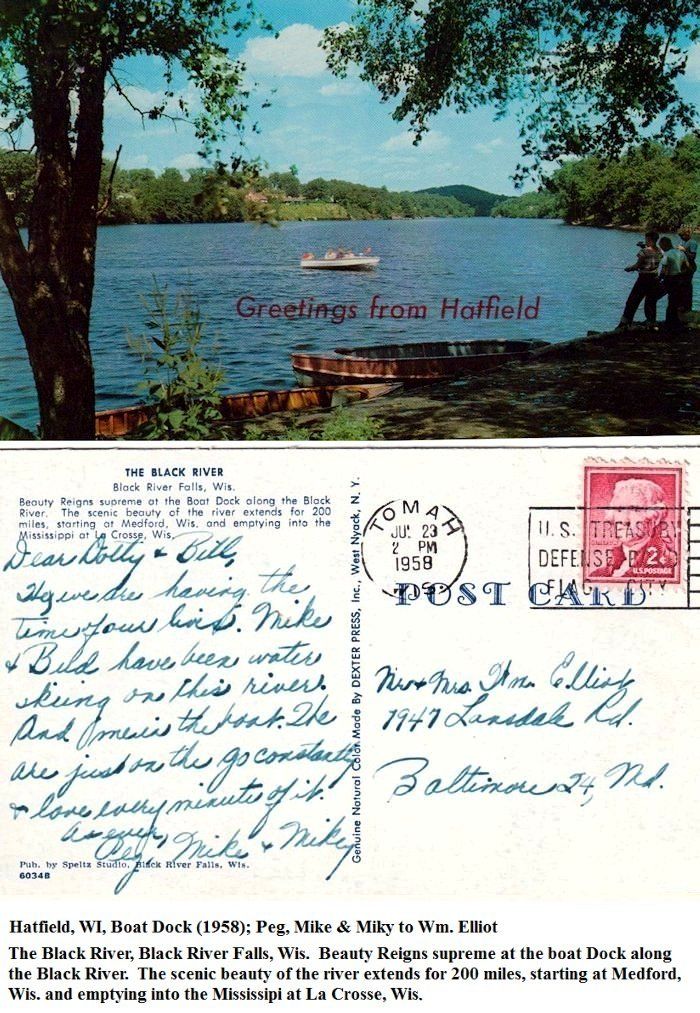 Greetings from Hatfield
THE BLACK RIVER
Black River Falls, Wis.
Beauty Reigns supreme at the Boat Dock along the Black
River. The scenic beauty of the river extends for 200
miles, starting at Medford, Wis. and emptying into the
Mississippi at La Crosse, Wis.
Dear Dotty & Bill,
Hy we are having the
time of our lives. Mike
& Bud have been water
skiing on this river.
And me in the boat. We
are just on the go constantly
& love every minute of it.
As ever,
Peg, Mike & Mikey
Pub. by Speltz Studio, Black River Falls, Wis.
6034B
Genuine Natural Color Made By DEXTER PRESS, Inc., West Nyack, N. Y.
TOMAH
JUL 23
2 PM
1958
WIS.
U.S. TREASURY
DEFENSE
FLAG CITY
2¢
U.S. POSTAGE
POST CARD
Mr & Mrs. Wm. Elliot
1947 Lansdale Rd.
Baltimore 24, Md.
Hatfield, WI, Boat Dock (1958); Peg, Mike & Miky to Wm. Elliot
The Black River, Black River Falls, Wis. Beauty Reigns supreme at the boat Dock along
the Black River. The scenic beauty of the river extends for 200 miles, starting at Medford,
Wis. and emptying into the Mississipi at La Crosse, Wis.